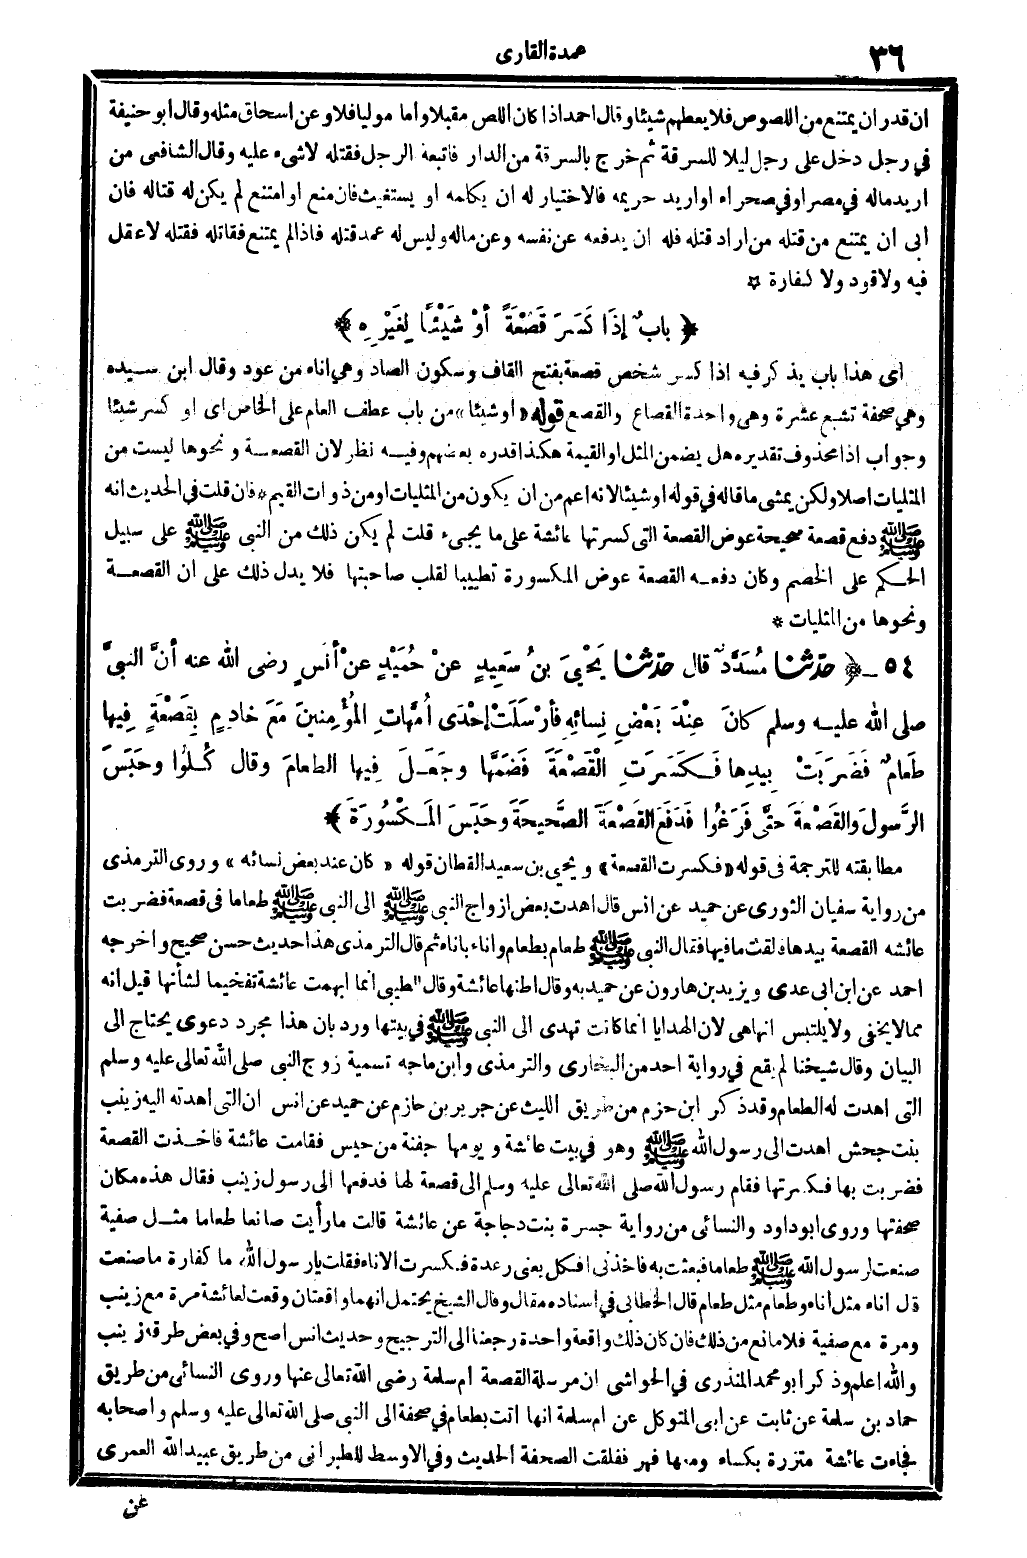 ٣٦
عمدة القارى
ان قدر ان يمتنع من اللصوص فلا يعطهم شيئا وقال احمد اذا كان اللص مقبلا واما موليا فلا وعن اسحاق مثله وقال ابو حنيفة
في رجل دخل على رجل ليلا للسرقة ثم خرج بالسرقة من الدار فاتبعه الرجل فقتله لاشىء عليه وقال الشافعى من
اريد ماله في مصر او في صحراء او اريد حريمه فالاختيار له ان يكلمه او يستغيث فان منع او امتنع لم يكن له قتاله فان
ابى ان يمتنع من قتله من اراد قتله فله ان يدفعه عن نفسه وعن ماله وليس له عمد قتله فاذا لم يمتنع فقاتله فقتله لا عقل
فيه ولا قود ولا كفارة *
﴿ بابٌ إذَا كَسَرَ قَصْعَةً أوْ شَيْئًا لِغَيْرِهِ ﴾
اى هذا باب يذكر فيه اذا كسر شخص قصعة بفتح القاف وسكون الصاد وهي اناء من عود وقال ابن سيده
وهي صحفة تشبع عشرة وهى واحدة القصاع والقصع قوله «اوشيئا» من باب عطف العام على الخاص اى او كسر شيئا
وجواب اذا محذوف تقديره هل يضمن المثل او القيمة هكذا قدره بعضهم وفيه نظر لان القصعة ونحوها ليست من
المثليات اصلا ولكن يمشى ما قاله في قوله او شيئا لانه اعم من ان يكون من المثليات او من ذوات القيم * فان قلت في الحديث انه
ﷺ دفع قصعة صحيحة عوض القصعة التى كسرتها عائشة على ما يجىء قلت لم يكن ذلك من النبى ﷺ على سبيل
الحكم على الخصم وكان دفعه القصعة عوض المكسورة تطييبا لقلب صاحبتها فلا يدل ذلك على ان القصعة
ونحوها من المثليات *
٥٤ - ﴿ حدثنا مُسَدَّدٌ قال حدثنا يَحْيىَ بنُ سَعِيدٍ عنْ حُمَيْدٍ عنْ أنَسٍ رضى الله عنه أنَّ النبىَّ
صلى الله عليه وسلم كانَ عِنْدَ بَعْضِ نِسائِهِ فأرْسَلَتْ إحْدَى أُمَّهاتِ المُؤْمِنِينَ مَعَ خادِمٍ بِقَصْعَةٍ فِيها
طَعامٌ فَضَرَبَتْ بِيدِها فَكَسَرَتِ الْقَصْعَةَ فَضَمَّها وجَعَلَ فِيها الطعامَ وقال كُلُوا وحَبَسَ
الرَّسولَ والقَصْعةَ حتَّى فَرَغُوا فَدَفَعَ القَصْعَةَ الصَّحيحَةَ وحَبَسَ المَكْسُورَةَ ﴾
مطابقته للترجمة فى قوله «فكسرت القصعة» ويحيى بن سعيد القطان قوله «كان عند بعض نسائه» وروى الترمذى
من رواية سفيان الثورى عن حميد عن انس قال اهدت بعض ازواج النبى ﷺ الى النبى ﷺ طعاما فى قصعة فضربت
عائشه القصعة بيدها فالقت ما فيها فقال النبى ﷺ طعام بطعام واناء باناء ثم قال الترمذى هذا حديث حسن صحيح واخرجه
احمد عن ابن ابى عدى ويزيد بن هارون عن حميد به وقال اظنها عائشة وقال الطيبى انما ابهمت عائشة تفخيما لشأنها قيل انه
مما لا يخفى ولا يلتبس انها هى لان الهدايا انما كانت تهدى الى النبى ﷺ في بيتها ورد بان هذا مجرد دعوى يحتاج الى
البيان وقال شيخنا لم يقع في رواية احد من البخارى والترمذى وابن ماجه تسمية زوج النبى صلى الله تعالى عليه وسلم
التى اهدت له الطعام وقد ذكر ابن حزم من طريق الليث عن جرير بن حازم عن حميد عن انس ان التى اهدته اليه زينب
بنت جحش اهدت الى رسول الله ﷺ وهو في بيت عائشة ويومها جفنة من حيس فقامت عائشة فاخذت القصعة
فضربت بها فكسرتها فقام رسول الله صلى الله تعالى عليه وسلم الى قصعة لها فدفعها الى رسول زينب فقال هذه مكان
صحفتها وروى ابو داود والنسائى من رواية جسرة بنت دجاجة عن عائشة قالت ما رأيت صانعا طعاما مثل صفية
صنعت لرسول الله ﷺ طعاما فبعثت به فاخذنى افكل يعنى رعدة فكسرت الاناء فقلت يا رسول الله ما كفارة ما صنعت
قال اناء مثل اناء وطعام مثل طعام قال الخطابى في اسناده مقال وقال الشيخ يحتمل انهما واقعتان وقعت لعائشة مرة مع زينب
ومرة مع صفية فلا مانع من ذلك فان كان ذلك واقعة واحدة رجعنا الى الترجيح وحديث انس اصح وفي بعض طرقه زينب
والله اعلم وذكر ابو محمد المنذرى في الحواشى ان مرسلة القصعة ام سلمة رضى الله تعالى عنها وروى النسائى من طريق
حماد بن سلمة عن ثابت عن ابى المتوكل عن ام سلمة انها اتت بطعام في صحفة الى النبى صلى الله تعالى عليه وسلم واصحابه
فجاءت عائشة متزرة بكساء ومعها فهر ففلقت الصحفة الحديث وفي الاوسط للطبرانى من طريق عبيد الله العمرى
عن